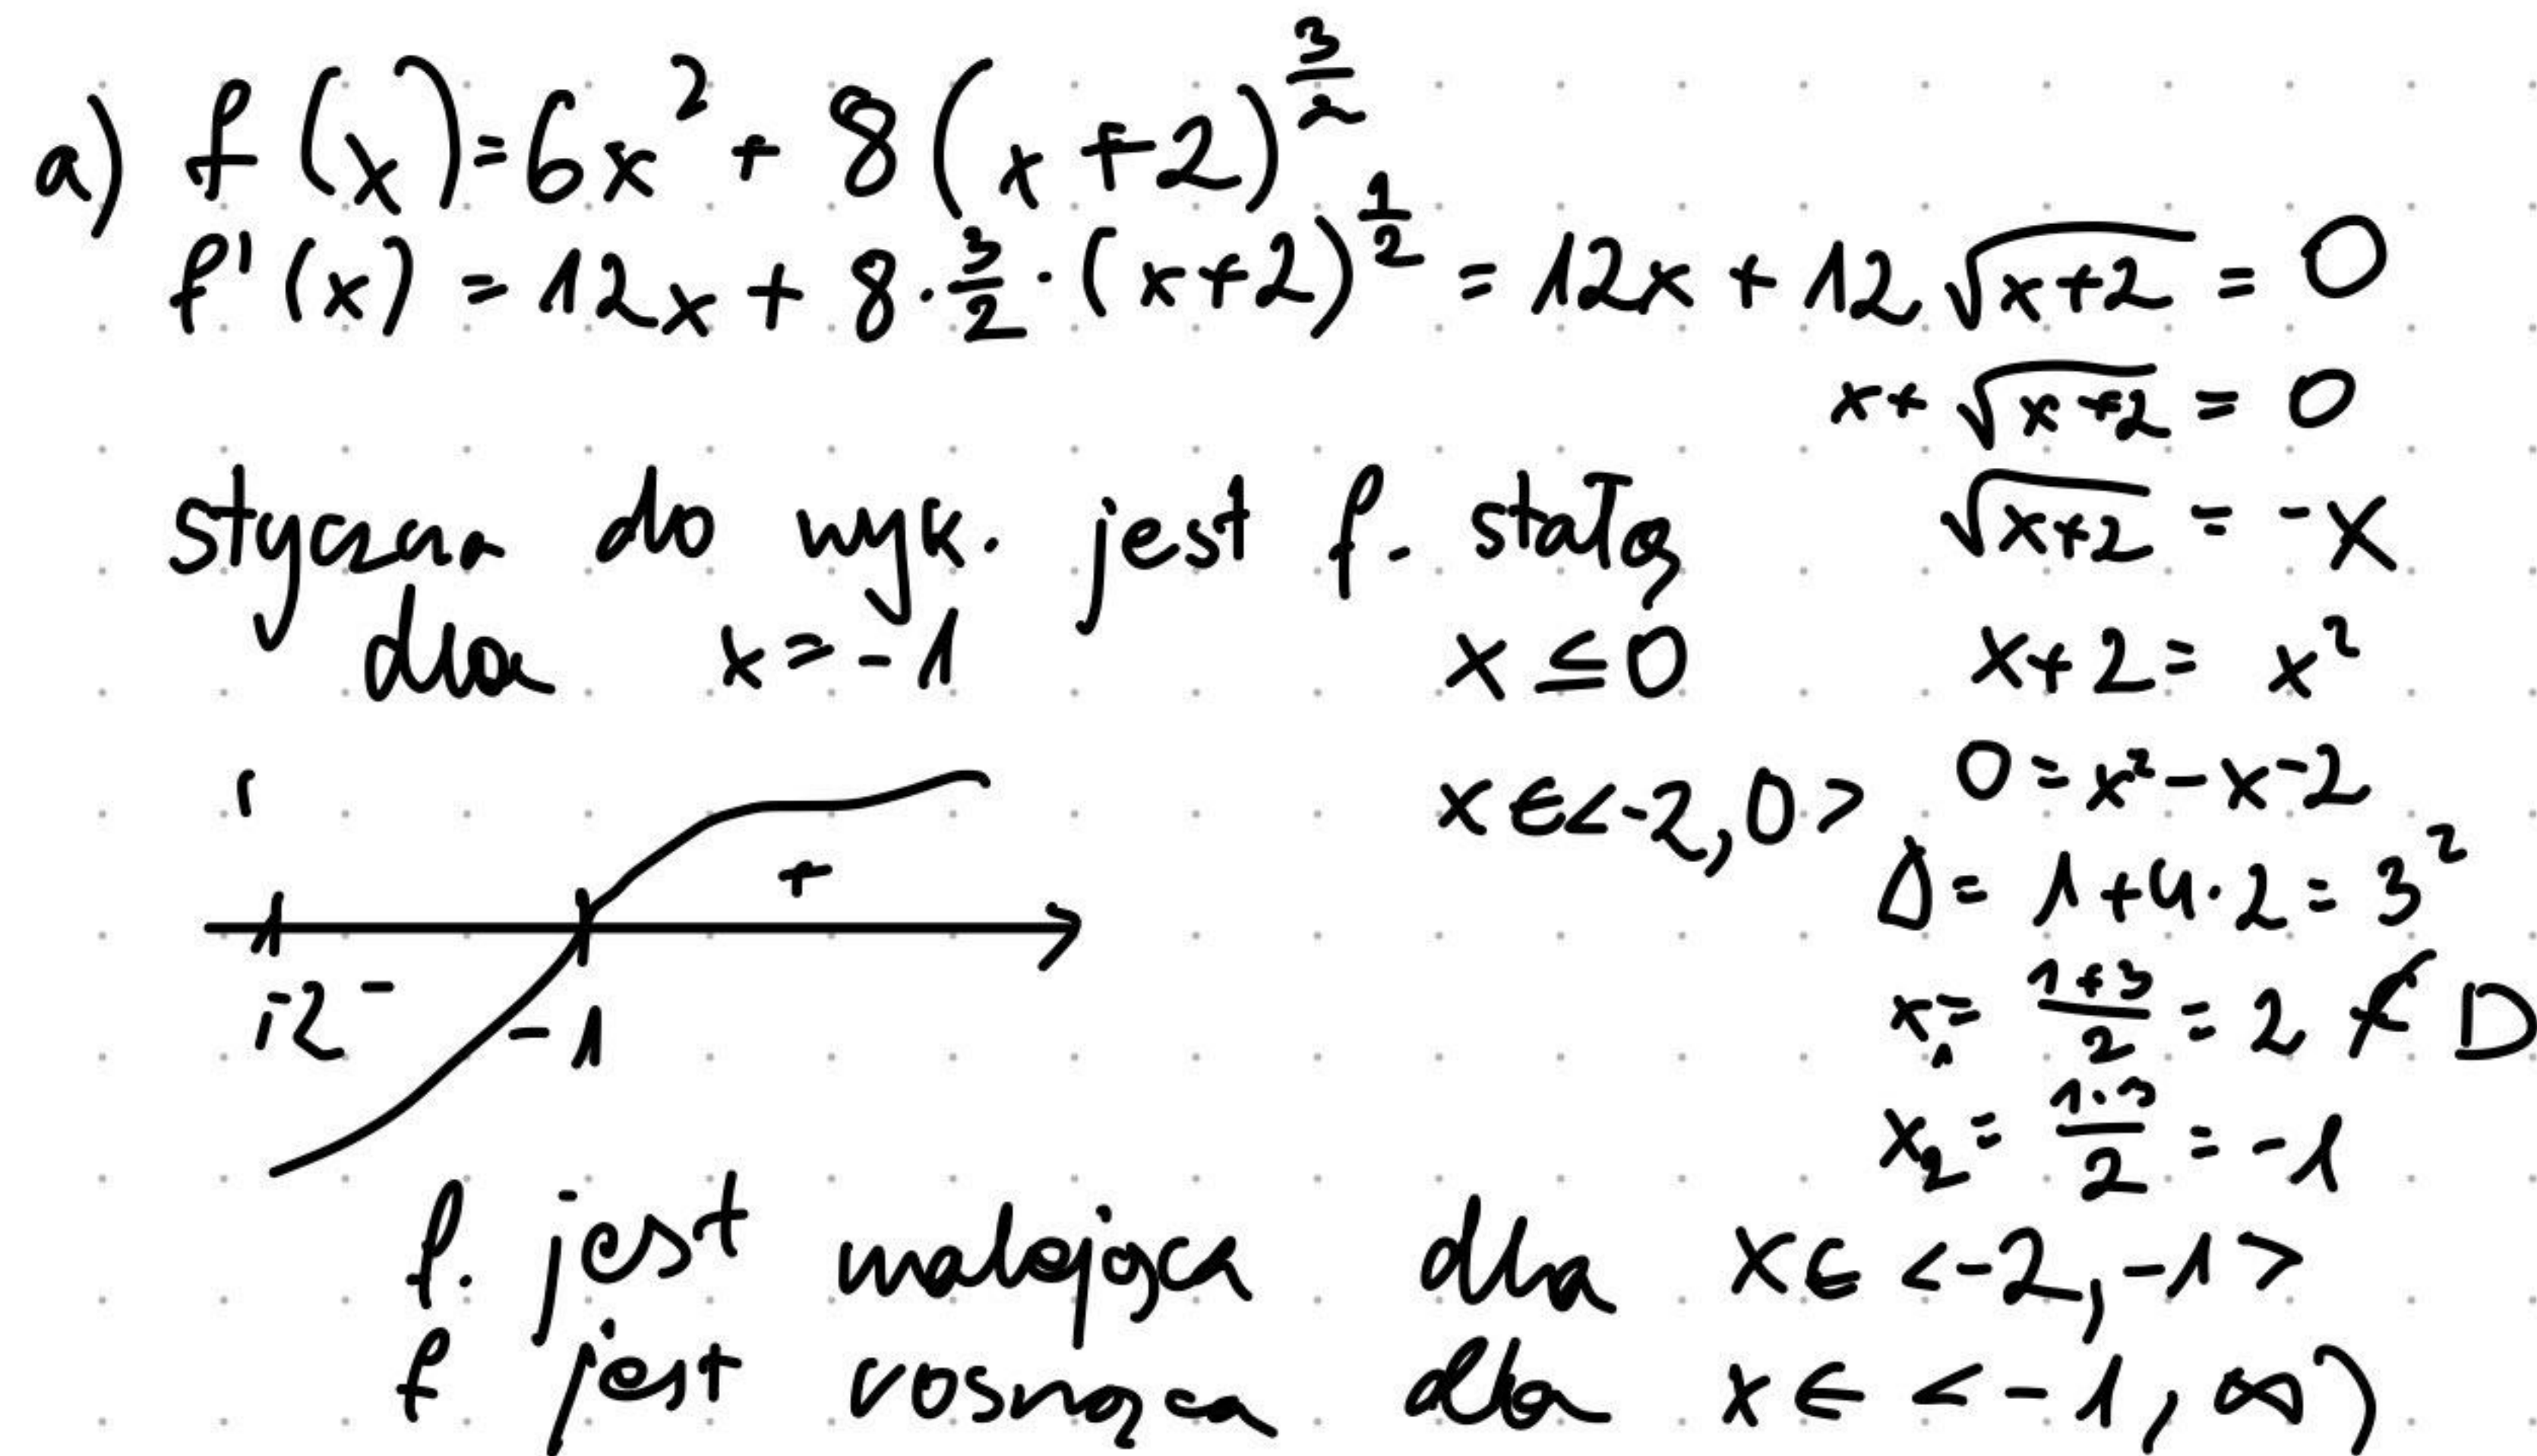 a) f(x)=6x² + 8(x+2)^(3/2)
f'(x) = 12x + 8·3/2·(x+2)^(1/2) = 12x + 12√(x+2) = 0
x+√(x+2) = 0
styczna do wyk. jest f. stałą
√(x+2) = -x
dla x=-1
x ≤ 0
x+2 = x²
x∈<-2,0>
0=x²-x-2
Δ= 1+4·2=3²
+
-2 - -1
x₁= (1+3)/2 = 2 ∉ D
x₂= (1-3)/2 = -1
f. jest malejąca dla x∈ <-2,-1>
f jest rosnąca dla x∈ <-1,∞)